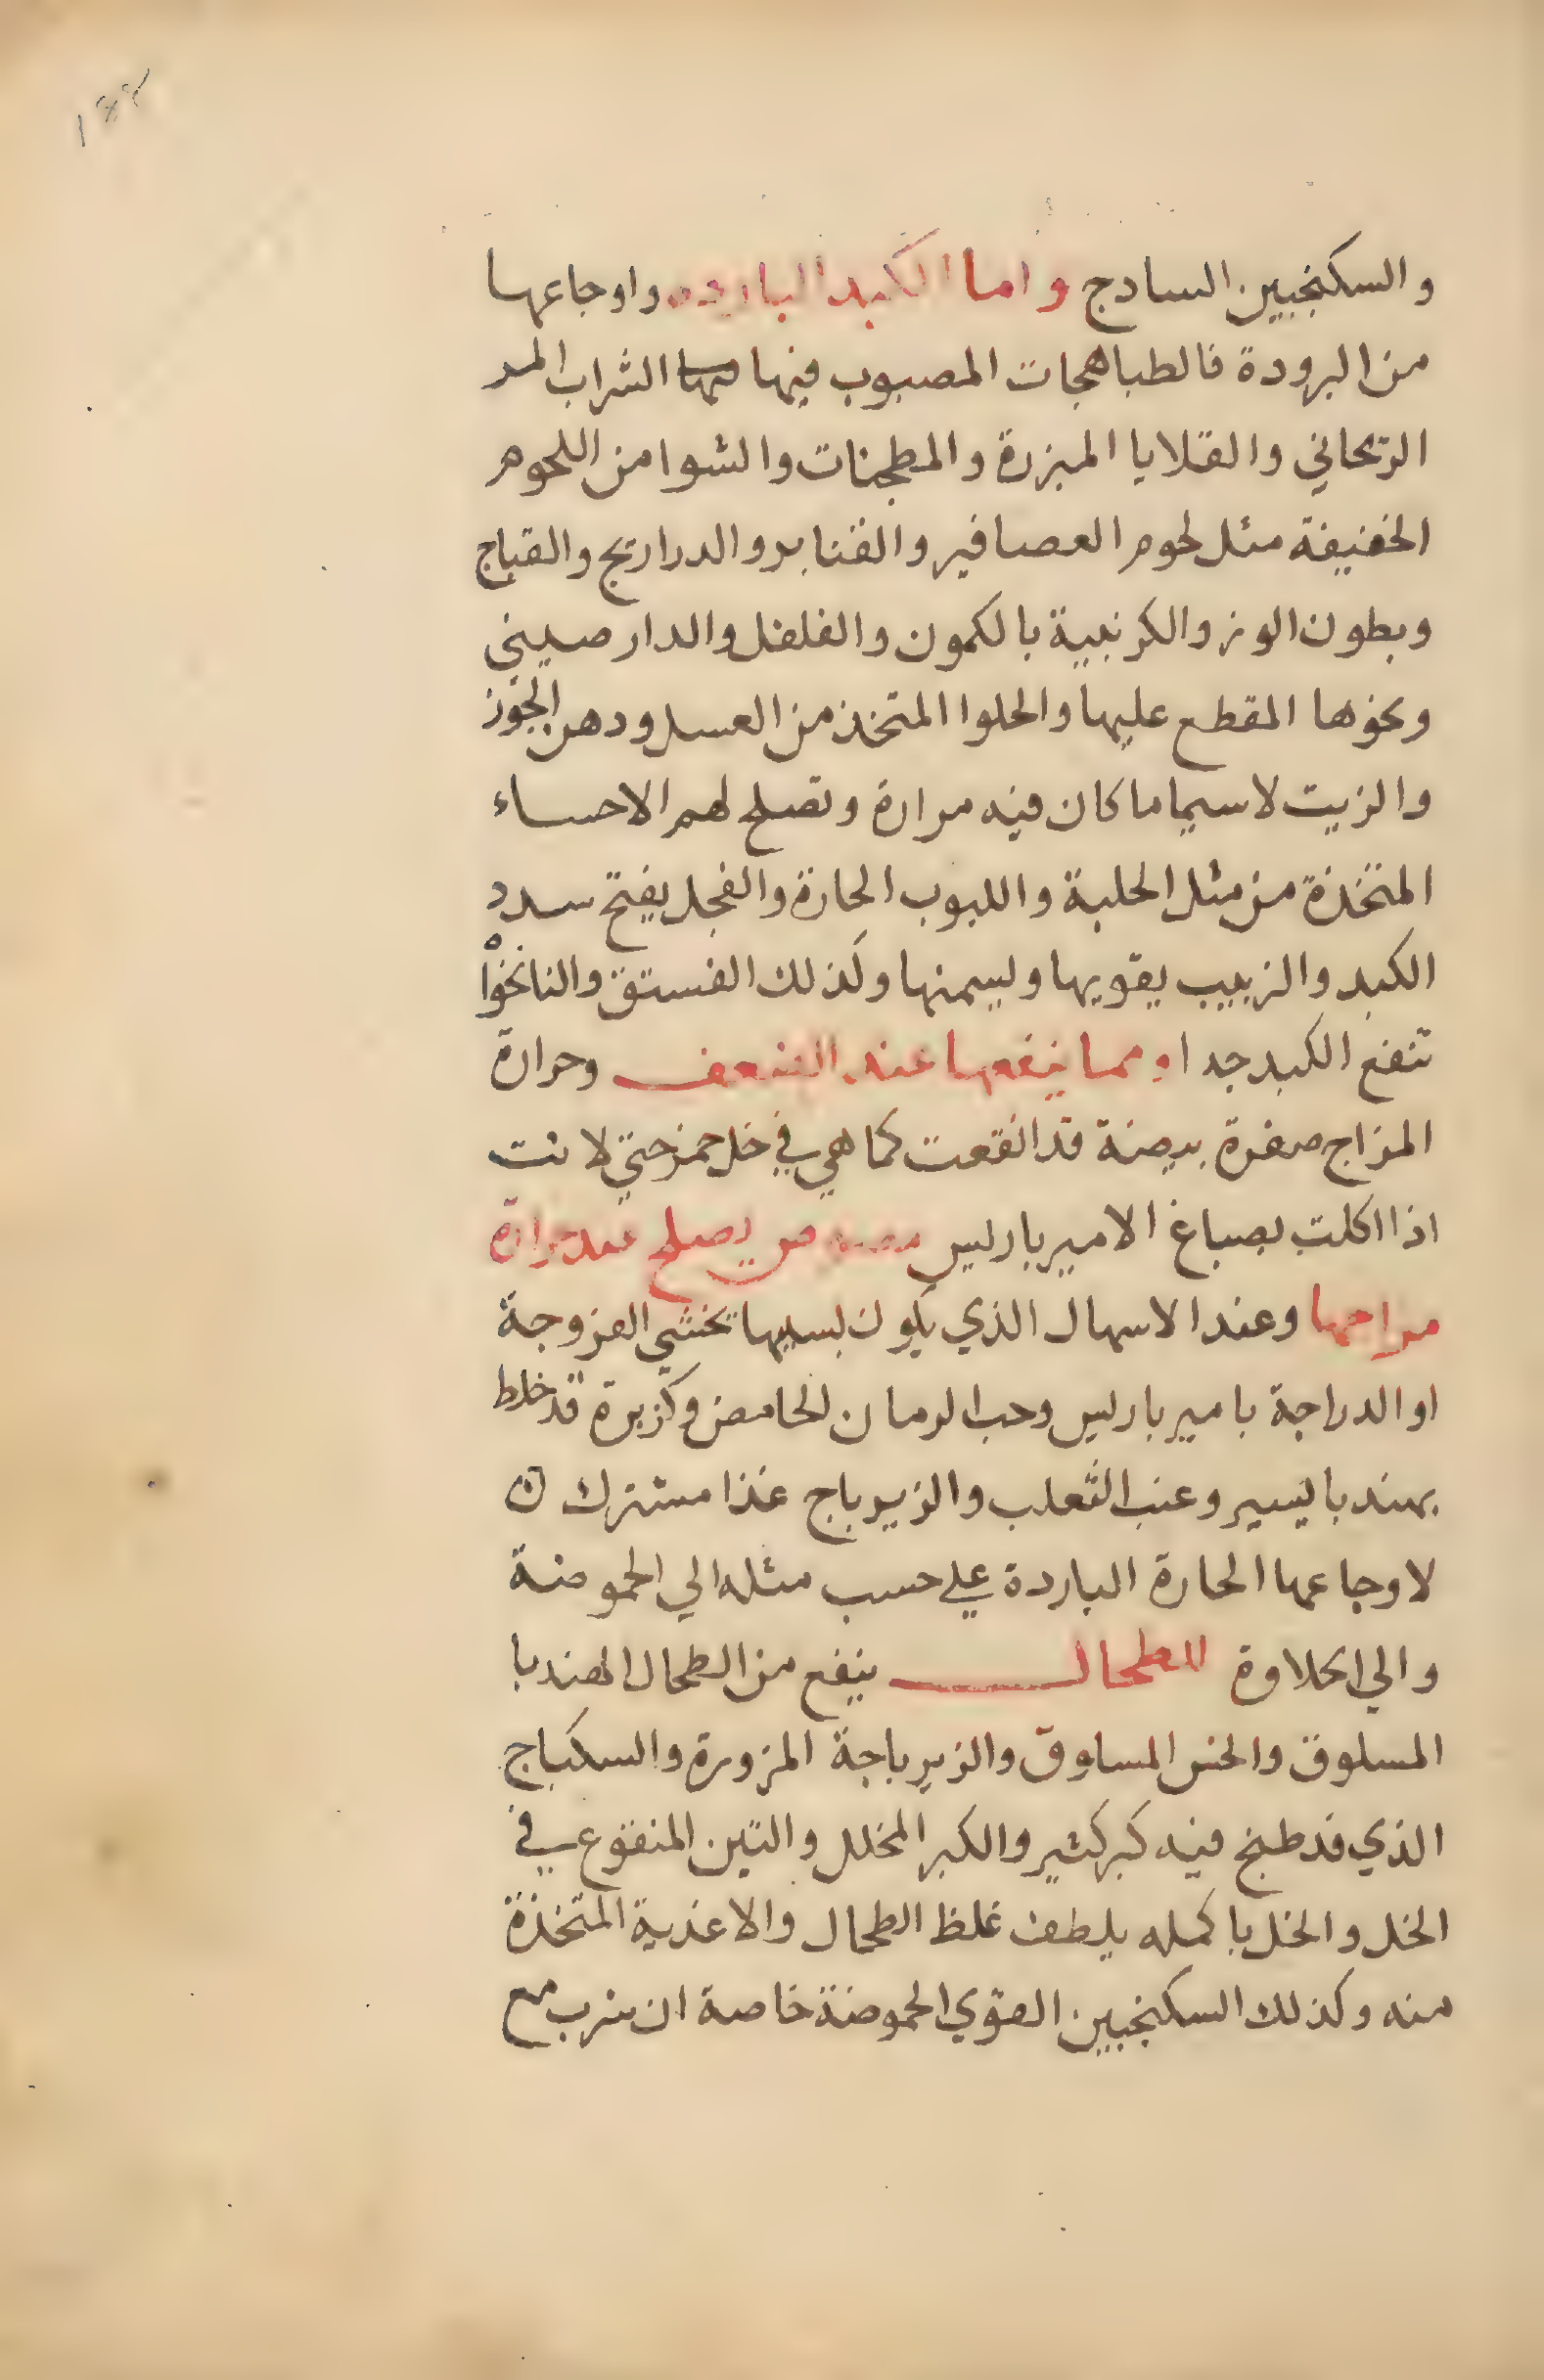 ١٤٢
والسكنجبين السادج واما الكبد البارده واوجاعها
من البرودة فالطباهجات المصبوب فيها فيها الشراب المر
الريحاني والقلايا المبزرة والمطجنات والشوا من اللحوم
الخفيفة مثل لحوم العصافير والقنابر والدراريج والقباج
وبطون الوز والكرنبية بالكمون والفلفل والدارصيني
ونحوها المقطع عليها والحلوا المتخذ من العسل ودهن الجوز
والزيت لاسيما ما كان فيه مرارة وتصلح لهم الاحساء
المتخذة من مثل الحلبة واللبوب الحارة والفجل يفتح سدد
الكبد والزبيب يقويها ويسمنها وكذلك الفستق والنانخواه
تنفع الكبد جدا ومما ينفعها عند الضعف وحرارة
المزاج صفرة بيضة قد انقعت كما هي في خل خمر حتي لانت
اذا اكلت بصباغ الاميرباريس مصوص يصلح عند حرارة
مزاجها وعند الاسهال الذي يكون بسببها تحشي الفروجة
او الدراجة باميرباريس وحب الرمان الحامض وكزبرة قد خلط
بهندبا يسير وعنب الثعلب والزيرباج غذا مشترك
لاوجاعها الحارة الباردة علي حسب مثله الي الحموضة
والي الحلاوة للطحال ينفع من الطحال الهندبا
المسلوق والخس المسلوق والزيرباجة المزورة والسكباج
الذي قد طبخ فيه كبر كثير والكبر المخلل والتين المنقوع في
الخل والخل باكمله يلطف غلظ الطحال والاغذية المتخذة
منه وكذلك السكنجبين القوي الحموضة خاصة ان شرب مع